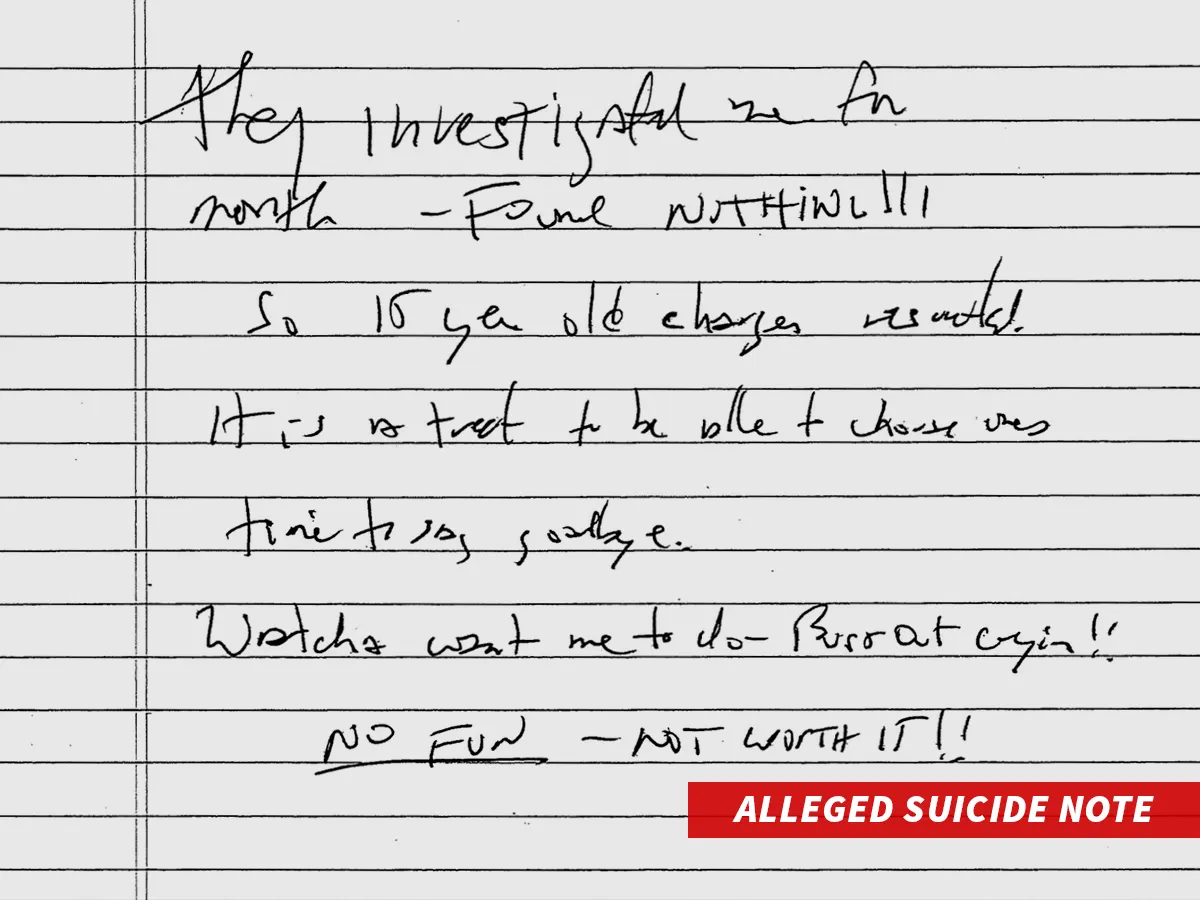 They investigated me for
month – Found NOTHING!!!
So 15 year old charges resulted.
It is a treat to be able to choose ones
time to say goodbye.
Watcha want me to do – Burst out cryin!!
NO FUN – NOT WORTH IT!!
ALLEGED SUICIDE NOTE